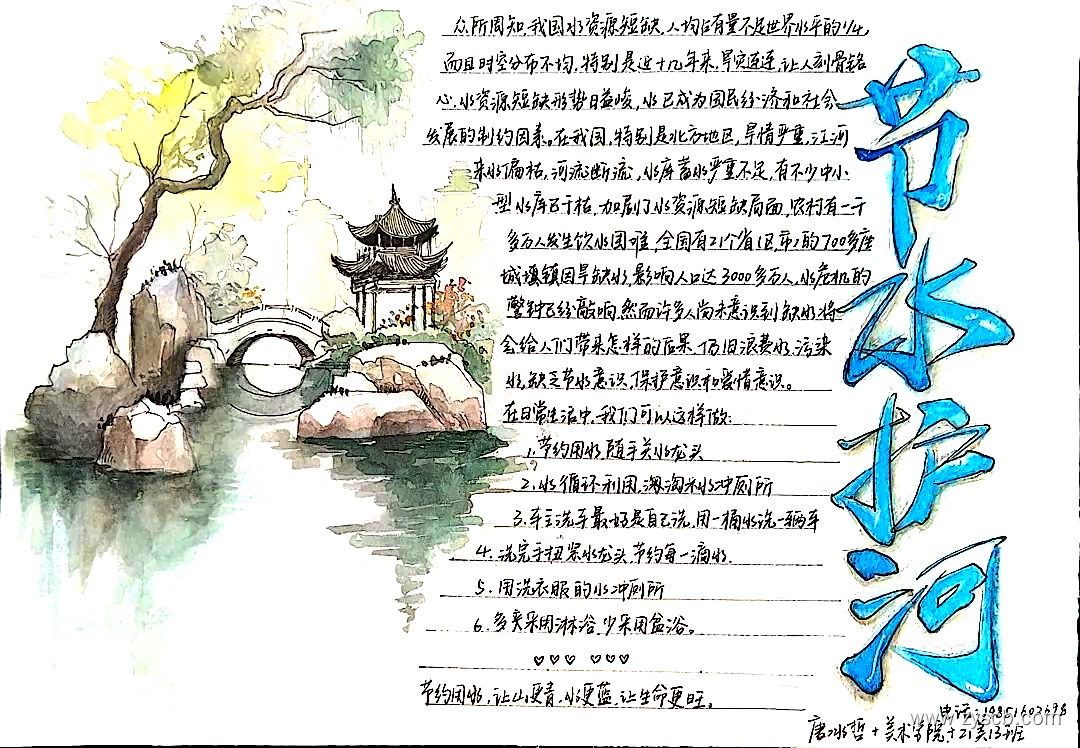 节水护河
众所周知,我国水资源短缺,人均占有量不足世界水平的1/4,
而且时空分布不均,特别是近十几年来,旱灾连连,让人刻骨铭
心,水资源短缺形势日益峻,水已成为国民经济和社会
发展的制约因素。在我国,特别是北方地区,旱情严重,江河
来水偏枯,河流断流,水库蓄水严重不足,有不少中小
型水库已干枯,加剧了水资源短缺局面,农村有一千
多万人发生饮水困难,全国有21个省(区、市)的700多座
城镇因旱缺水,影响人口达3000多万人,水危机的
警钟已经敲响,然而许多人尚未意识到缺水将
会给人们带来怎样的后果,仍旧浪费水,污染
水,缺乏节水意识,保护意识和爱惜意识。
在日常生活中,我们可以这样做:
1.节约用水,随手关水龙头
2.水循环利用,淘米水冲厕所
3.车主洗车最好是自己洗,用一桶水洗一辆车
4.洗完手扭紧水龙头,节约每一滴水.
5.用洗衣服的水冲厕所
6.多采用淋浴,少采用盆浴。
♡♡♡ ♡♡♡
节约用水,让山更青,水更蓝,让生命更旺。
电话:19851602698
唐冰哲+美术学院+21美13班
www.zyscb.com